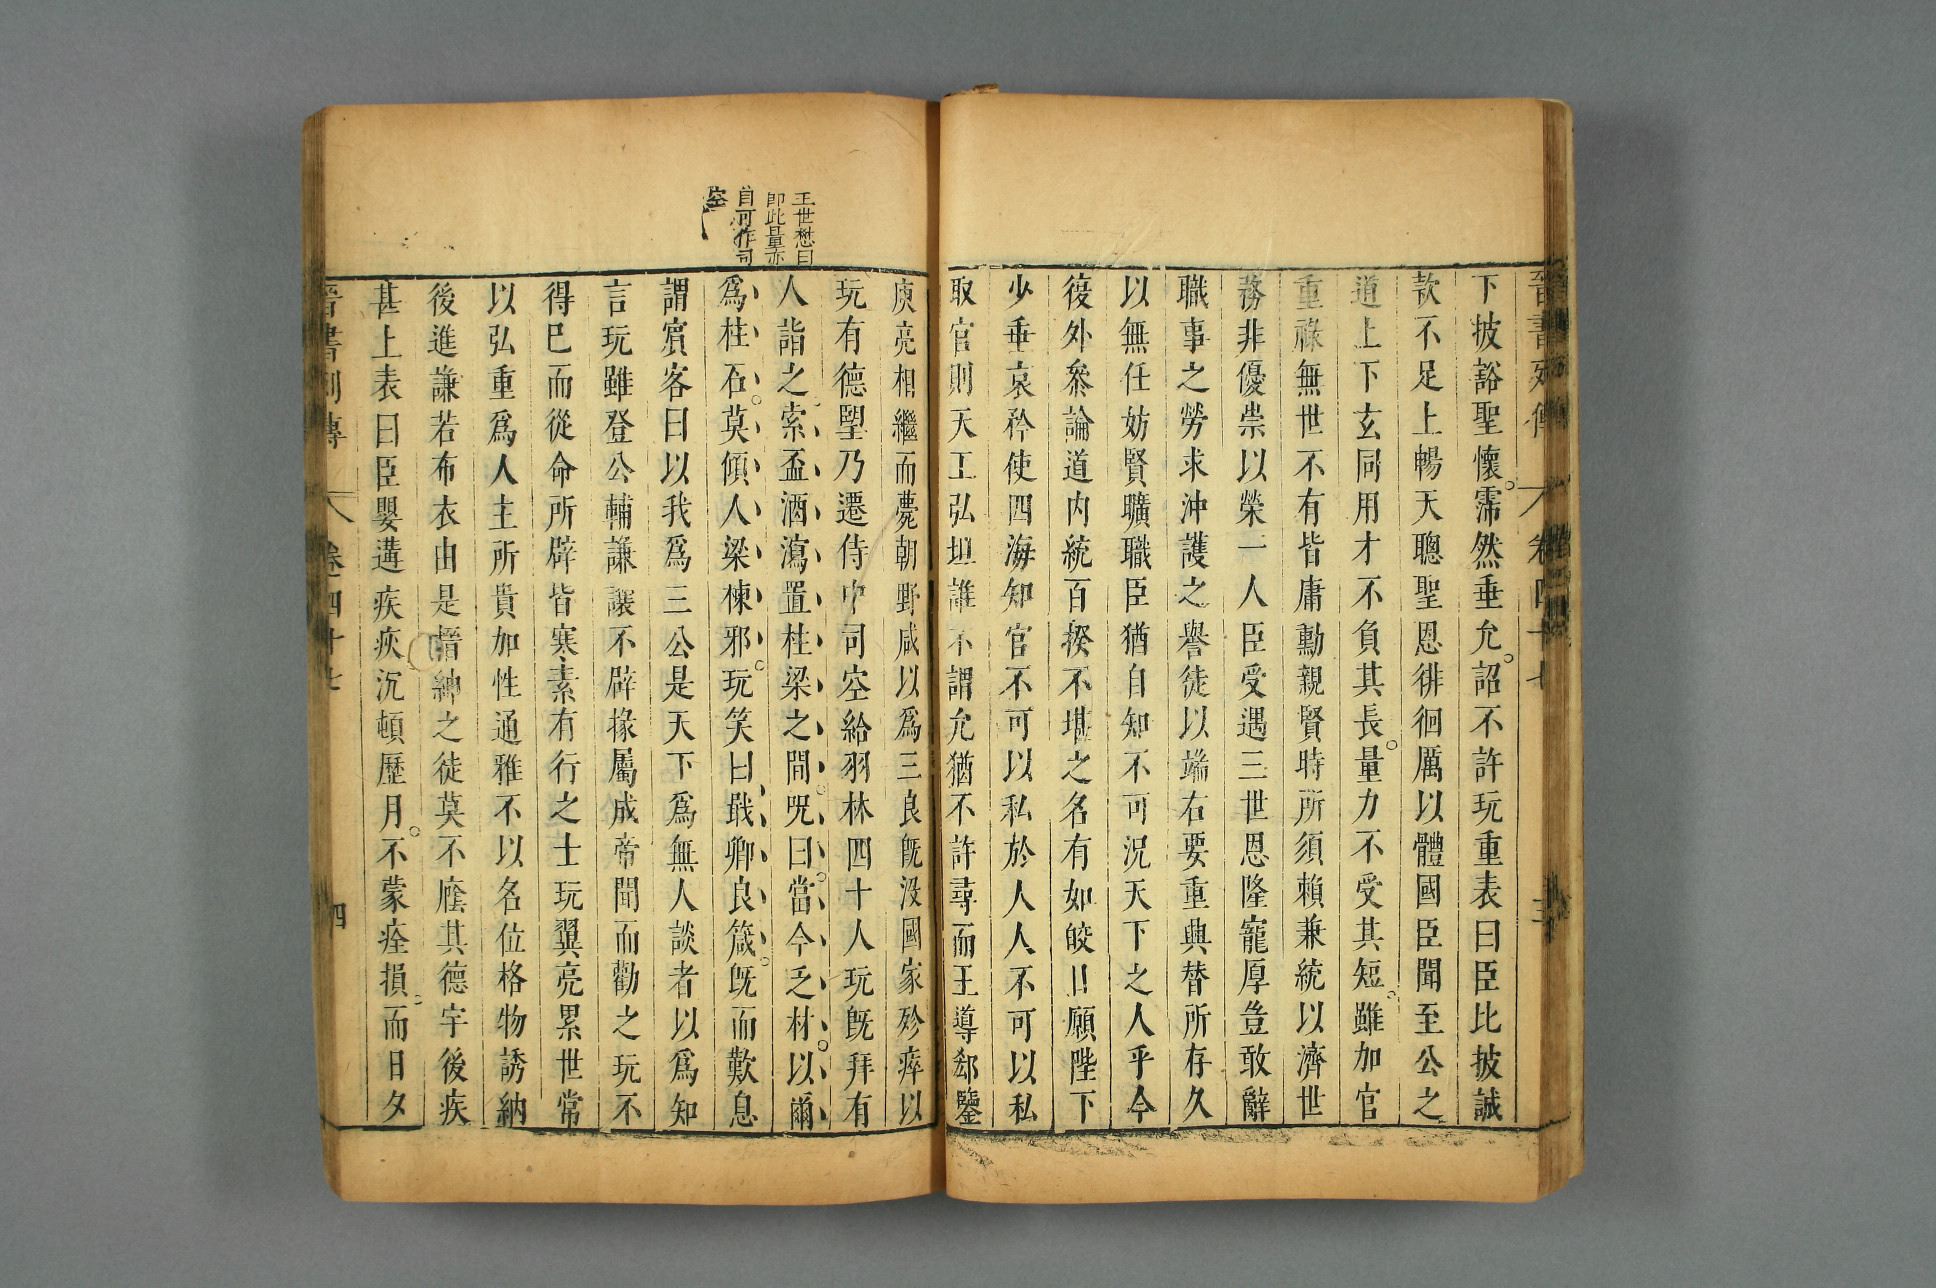 晉書列傳 卷四十七 三
下披豁聖懷霈然垂允詔不許玩重表曰臣比披誠
款不足上暢天聰聖恩徘徊厲以體國臣聞至公之
道上下玄同用才不負其長量力不受其短雖加官
重祿無世不有皆庸勳親賢時所須賴兼統以濟世
務非優崇以榮一人臣受遇三世恩隆寵厚豈敢辭
職事之勞求沖護之譽徒以端右要重興替所存久
以無任妨賢曠職臣猶自知不可況天下之人乎今
復外叅論道内統百揆不堪之名有如皎日願陛下
少垂哀矜使四海知官不可以私於人人不可以私
取官則天工弘坦誰不謂允猶不許尋而王導郄鑒
庾亮相繼而薨朝野咸以爲三良旣沒國家殄瘁以
玩有德望乃遷侍中司空給羽林四十人玩旣拜有
人詣之索盃酒瀉置柱梁之間呪曰當今乏材以爾
爲柱石莫傾人梁棟邪玩笑曰戢卿良箴旣而歎息
謂賓客曰以我爲三公是天下爲無人談者以爲知
言玩雖登公輔謙讓不辟掾屬成帝聞而勸之玩不
得巳而從命所辟皆寒素有行之士玩翼亮累世常
以弘重爲人主所貴加性通雅不以名位格物誘納
後進謙若布衣由是搢紳之徒莫不廕其德宇後疾
甚上表曰臣嬰遘疾疢沉頓歷月不蒙痊損而日夕
晉書列傳 卷四十七 四
王世懋曰
即此量亦
自可作司
空